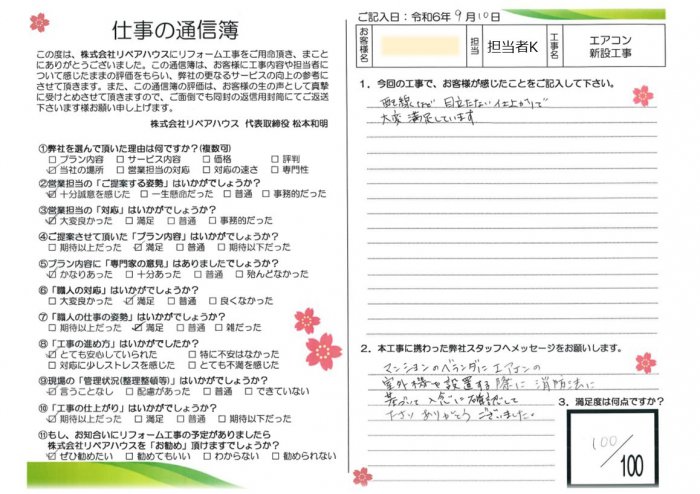 仕事の通信簿
この度は、株式会社リペアハウスにリフォーム工事をご用命頂き、まこと
にありがとうございました。この通信簿は、お客様に工事内容や担当者に
ついて感じたままの評価をもらい、弊社の更なるサービスの向上の参考に
させて頂きます。また、この通信簿の評価は、お客様の生の声として真摯
に受けとめさせて頂きますので、ご面倒でも同封の返信用封筒にてご返送
下さいます様お願い申し上げます。
株式会社リペアハウス 代表取締役 松本和明
①弊社を選んで頂いた理由は何ですか?(複数可)
□プラン内容 □サービス内容 □価格 □評判
☑当社の場所 □営業担当の対応 □対応の速さ □専門性
②営業担当の「ご提案する姿勢」はいかがでしょうか?
☑十分誠意を感じた □一生懸命だった □普通 □事務的だった
③営業担当の「対応」はいかがでしょうか?
☑大変良かった □満足 □普通 □事務的だった
④ご提案させて頂いた「プラン内容」はいかがでしょうか?
□期待以上だった ☑満足 □普通 □期待以下だった
⑤プラン内容に「専門家の意見」はありましたでしょうか?
☑かなりあった □十分あった □普通 □殆んどなかった
⑥「職人の対応」はいかがでしょうか?
□大変良かった ☑満足 □普通 □良くなかった
⑦「職人の仕事の姿勢」はいかがでしょうか?
□期待以上だった ☑満足 □普通 □雑だった
⑧「工事の進め方」はいかがでしたか?
☑とても安心していられた □特に不安はなかった
□対応に少しストレスを感じた □とても不満を感じた
⑨現場の「管理状況(整理整頓等)」はいかがでしょうか?
☑言うことなし □配慮があった □普通 □できていない
⑩「工事の仕上がり」はいかがでしょうか?
□期待以上だった ☑満足 □普通 □期待以下だった
⑪もし、お知合いにリフォーム工事の予定がありましたら
株式会社リペアハウスを「お勧め」頂けますでしょうか?
☑ぜひ勧めたい □勧めてもいい □わからない □勧められない
ご記入日:令和6年9月10日
お客様名
担当
担当者K
工事名
エアコン
新設工事
1.今回の工事で、お客様が感じたことをご記入して下さい。
配線など 目立たない仕上がりで
大変満足しています
2.本工事に携わった弊社スタッフへメッセージをお願いします。
マンションのベランダにエアコンの
室外機を設置する際に消防法に
基づいて入念に確認して
下さりありがとうございました。
3.満足度は何点ですか?
100/100